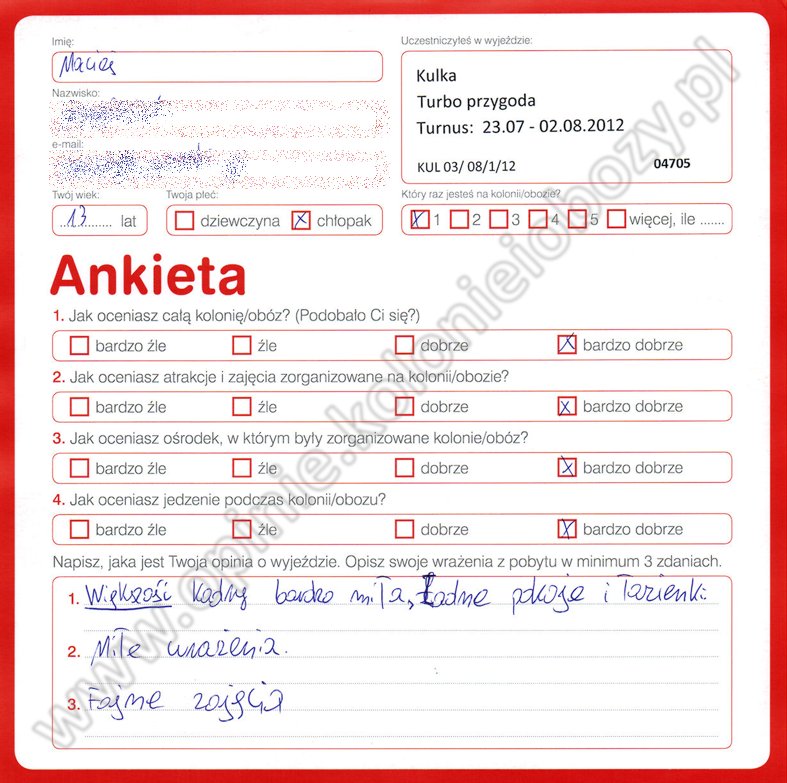 Imię:
Maciej
Uczestniczyłeś w wyjeździe:
Kulka
Turbo przygoda
Turnus: 23.07 - 02.08.2012
KUL 03/ 08/1/12 04705
Nazwisko:
e-mail:
Twój wiek:
13 lat
Twoja płeć:
dziewczyna X chłopak
Który raz jesteś na kolonii/obozie?
X 1 2 3 4 5 więcej, ile .......
Ankieta
1. Jak oceniasz całą kolonię/obóz? (Podobało Ci się?)
bardzo źle źle dobrze X bardzo dobrze
2. Jak oceniasz atrakcje i zajęcia zorganizowane na kolonii/obozie?
bardzo źle źle dobrze X bardzo dobrze
3. Jak oceniasz ośrodek, w którym były zorganizowane kolonie/obóz?
bardzo źle źle dobrze X bardzo dobrze
4. Jak oceniasz jedzenie podczas kolonii/obozu?
bardzo źle źle dobrze X bardzo dobrze
Napisz, jaka jest Twoja opinia o wyjeździe. Opisz swoje wrażenia z pobytu w minimum 3 zdaniach.
1. Większość kadry bardzo miła, Ładne pokoje i łazienki
2. Miłe wrażenia.
3. Fajne zajęcia
www.opinie.kolonieiobozy.pl